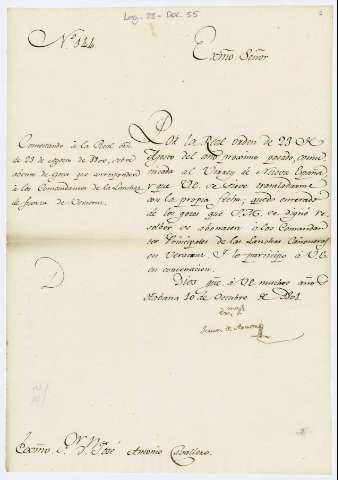 Leg. 72 - Doc. 55
Nº 144.
Exmo. Señor
Contextando à la Real orn.
de 23 de Agosto de 1800, sobre
abono de gozes que corresponden
à los Comandantes de las Lanchas
de fuerza de Veracruz.
Por la Real orden de 23 de
Agosto del año proximo pasado, comu-
nicada al Virrey de Nueva España,
y que V.E. se sirve trasladarme
con la propia fecha; quedo enterado
de los gozes que S.M. se dignó re-
solver se abonasen à los Comandan-
tes Principales de las Lanchas Cañoneras
en Veracruz. Y lo participo à V.E.
en contextacion.
Dios gue. à V.E. muchos años
Habana 10 de Octubre de 1801.
Exmo. Sr.
Exmo. Sr. Dn. José Antonio Caballero.